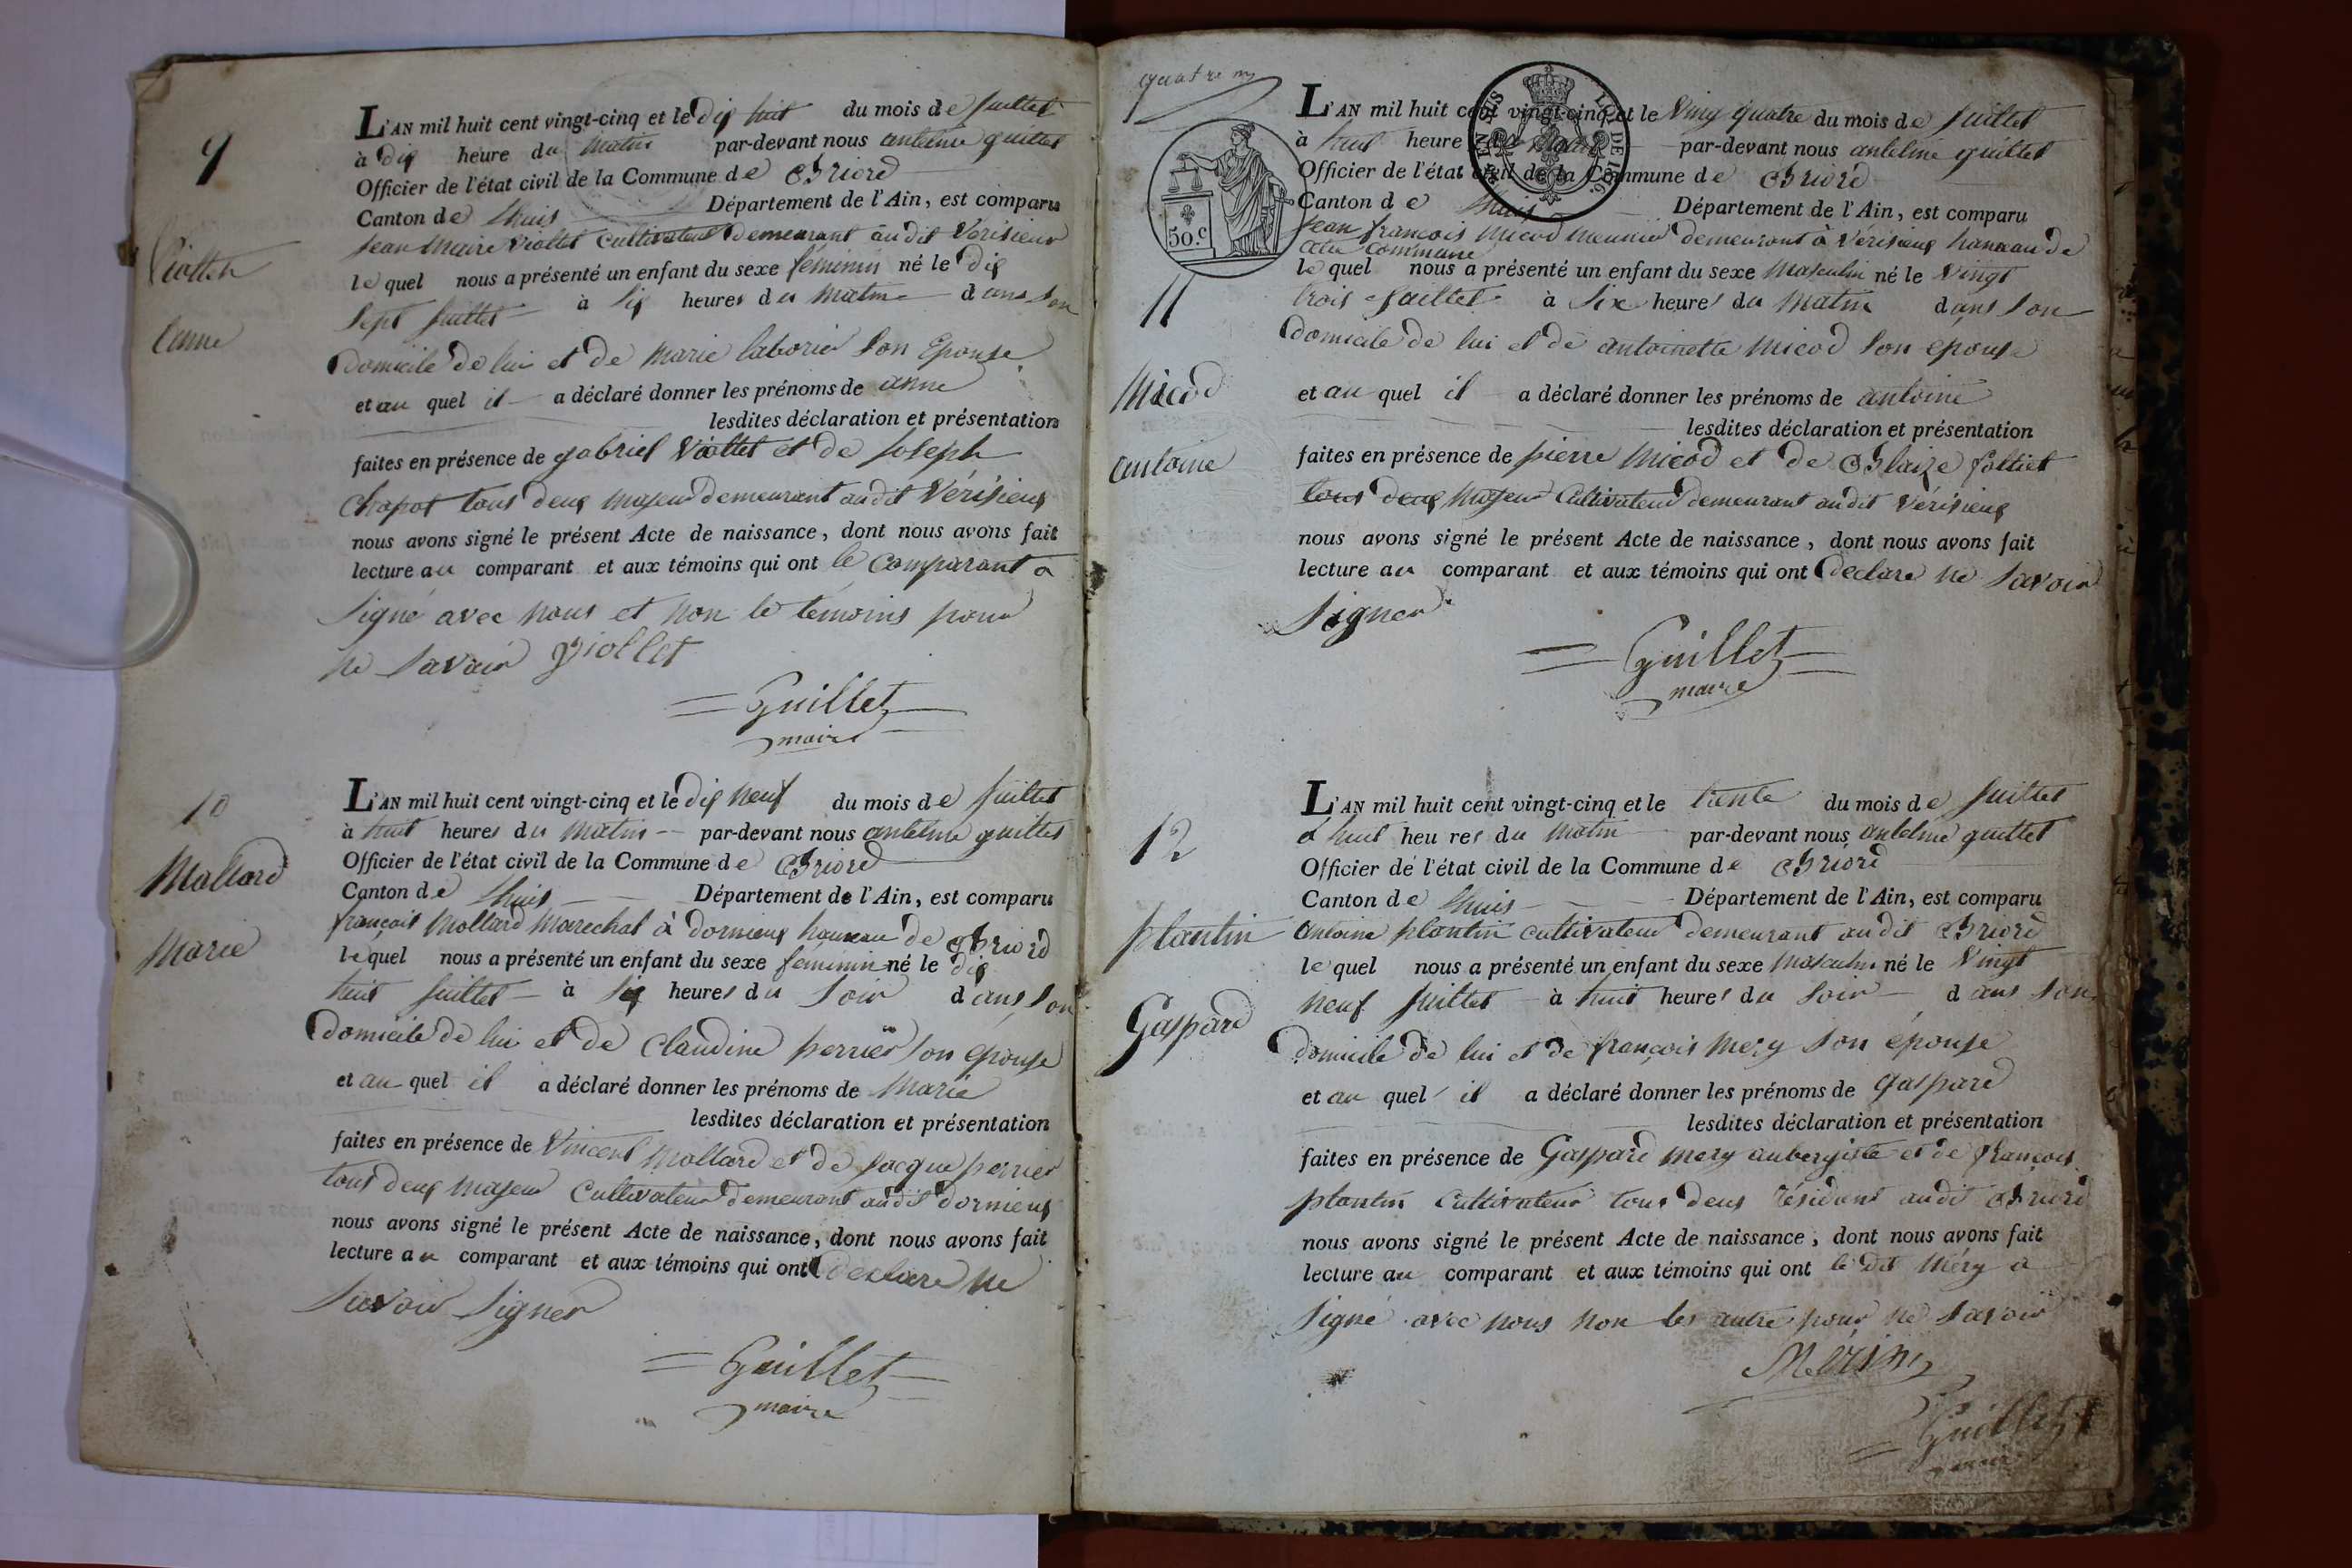 9
Viollet
anne
L'AN mil huit cent vingt-cinq et le dix huit du mois de juillet
à dix heure du matin par-devant nous antelme guillet
Officier de l'état civil de la Commune de Briord
Canton de Lhuis Département de l'Ain, est comparu
jean marie viollet cultivateur demeurant audit Vérisieux
lequel nous a présenté un enfant du sexe féminin né le dix
sept juillet à six heures du matin dans son
domicile de lui et de marie laborier son Epouse
et au quel il a déclaré donner les prénoms de anne
lesdites déclaration et présentation
faites en présence de gabriel Viollet et de joseph
Chapot tous deux majeur demeurant audit Vérisieux
nous avons signé le présent Acte de naissance, dont nous avons fait
lecture au comparant et aux témoins qui ont le comparant a
signé avec nous et non le témoins pour
ne savoir Viollet
Guillet
maire
10
Mollard
Marie
L'AN mil huit cent vingt-cinq et le dix neuf du mois de juillet
à huit heures du matin par-devant nous antelme guillet
Officier de l'état civil de la Commune de Briord
Canton de Lhuis Département de l'Ain, est comparu
françois Mollard Marechal à dornieux hameau de Briord
lequel nous a présenté un enfant du sexe féminin né le dix
huit juillet à six heures du soir dans son
domicile de lui et de Claudine perrier son épouse
et au quel il a déclaré donner les prénoms de Marie
lesdites déclaration et présentation
faites en présence de Vincent Mollard et de jacque perrier
tous deux majeur Cultivateur demeurant audit dornieux
nous avons signé le présent Acte de naissance, dont nous avons fait
lecture au comparant et aux témoins qui ont déclare ne
savoir signer
Guillet
maire
quatre
50.c
11
Micod
antoine
L'AN mil huit cent vingt-cinq et le Ving quatre du mois de juillet
à huit heure du matin par-devant nous antelme guillet
Officier de l'état civil de la Commune de Briord
Canton de Lhuis Département de l'Ain, est comparu
jean francois micod meunier demeurant à Vérisieux hameau de
commune
lequel nous a présenté un enfant du sexe Masculin né le Vingt
trois juillet à six heures du matin dans son
domicile de lui et de antoinette micod son épouse
et au quel il a déclaré donner les prénoms de antoine
lesdites déclaration et présentation
faites en présence de pierre micod et de Blaize
tous deux majeur Cultivateur demeurant audit Vérisieux
nous avons signé le présent Acte de naissance, dont nous avons fait
lecture au comparant et aux témoins qui ont déclare ne savoir
signer
Guillet
maire
12
plantin
Gaspard
L'AN mil huit cent vingt-cinq et le trente du mois de juillet
à huit heures du matin par-devant nous antelme guillet
Officier de l'état civil de la Commune de Briord
Canton de Lhuis Département de l'Ain, est comparu
Antoine plantin cultivateur demeurant audit Briord
lequel nous a présenté un enfant du sexe Masculin né le Vingt
neuf juillet à huit heures du soir dans son
domicile de lui et de françois mery son épouse
et au quel il a déclaré donner les prénoms de gaspard
lesdites déclaration et présentation
faites en présence de Gaspard mery aubergiste et de françois
plantin cultivateur tous deux résidant audit Briord
nous avons signé le présent Acte de naissance, dont nous avons fait
lecture au comparant et aux témoins qui ont le dit Méry a
signé avec nous non les autre pour ne savoir
Guillet
maire